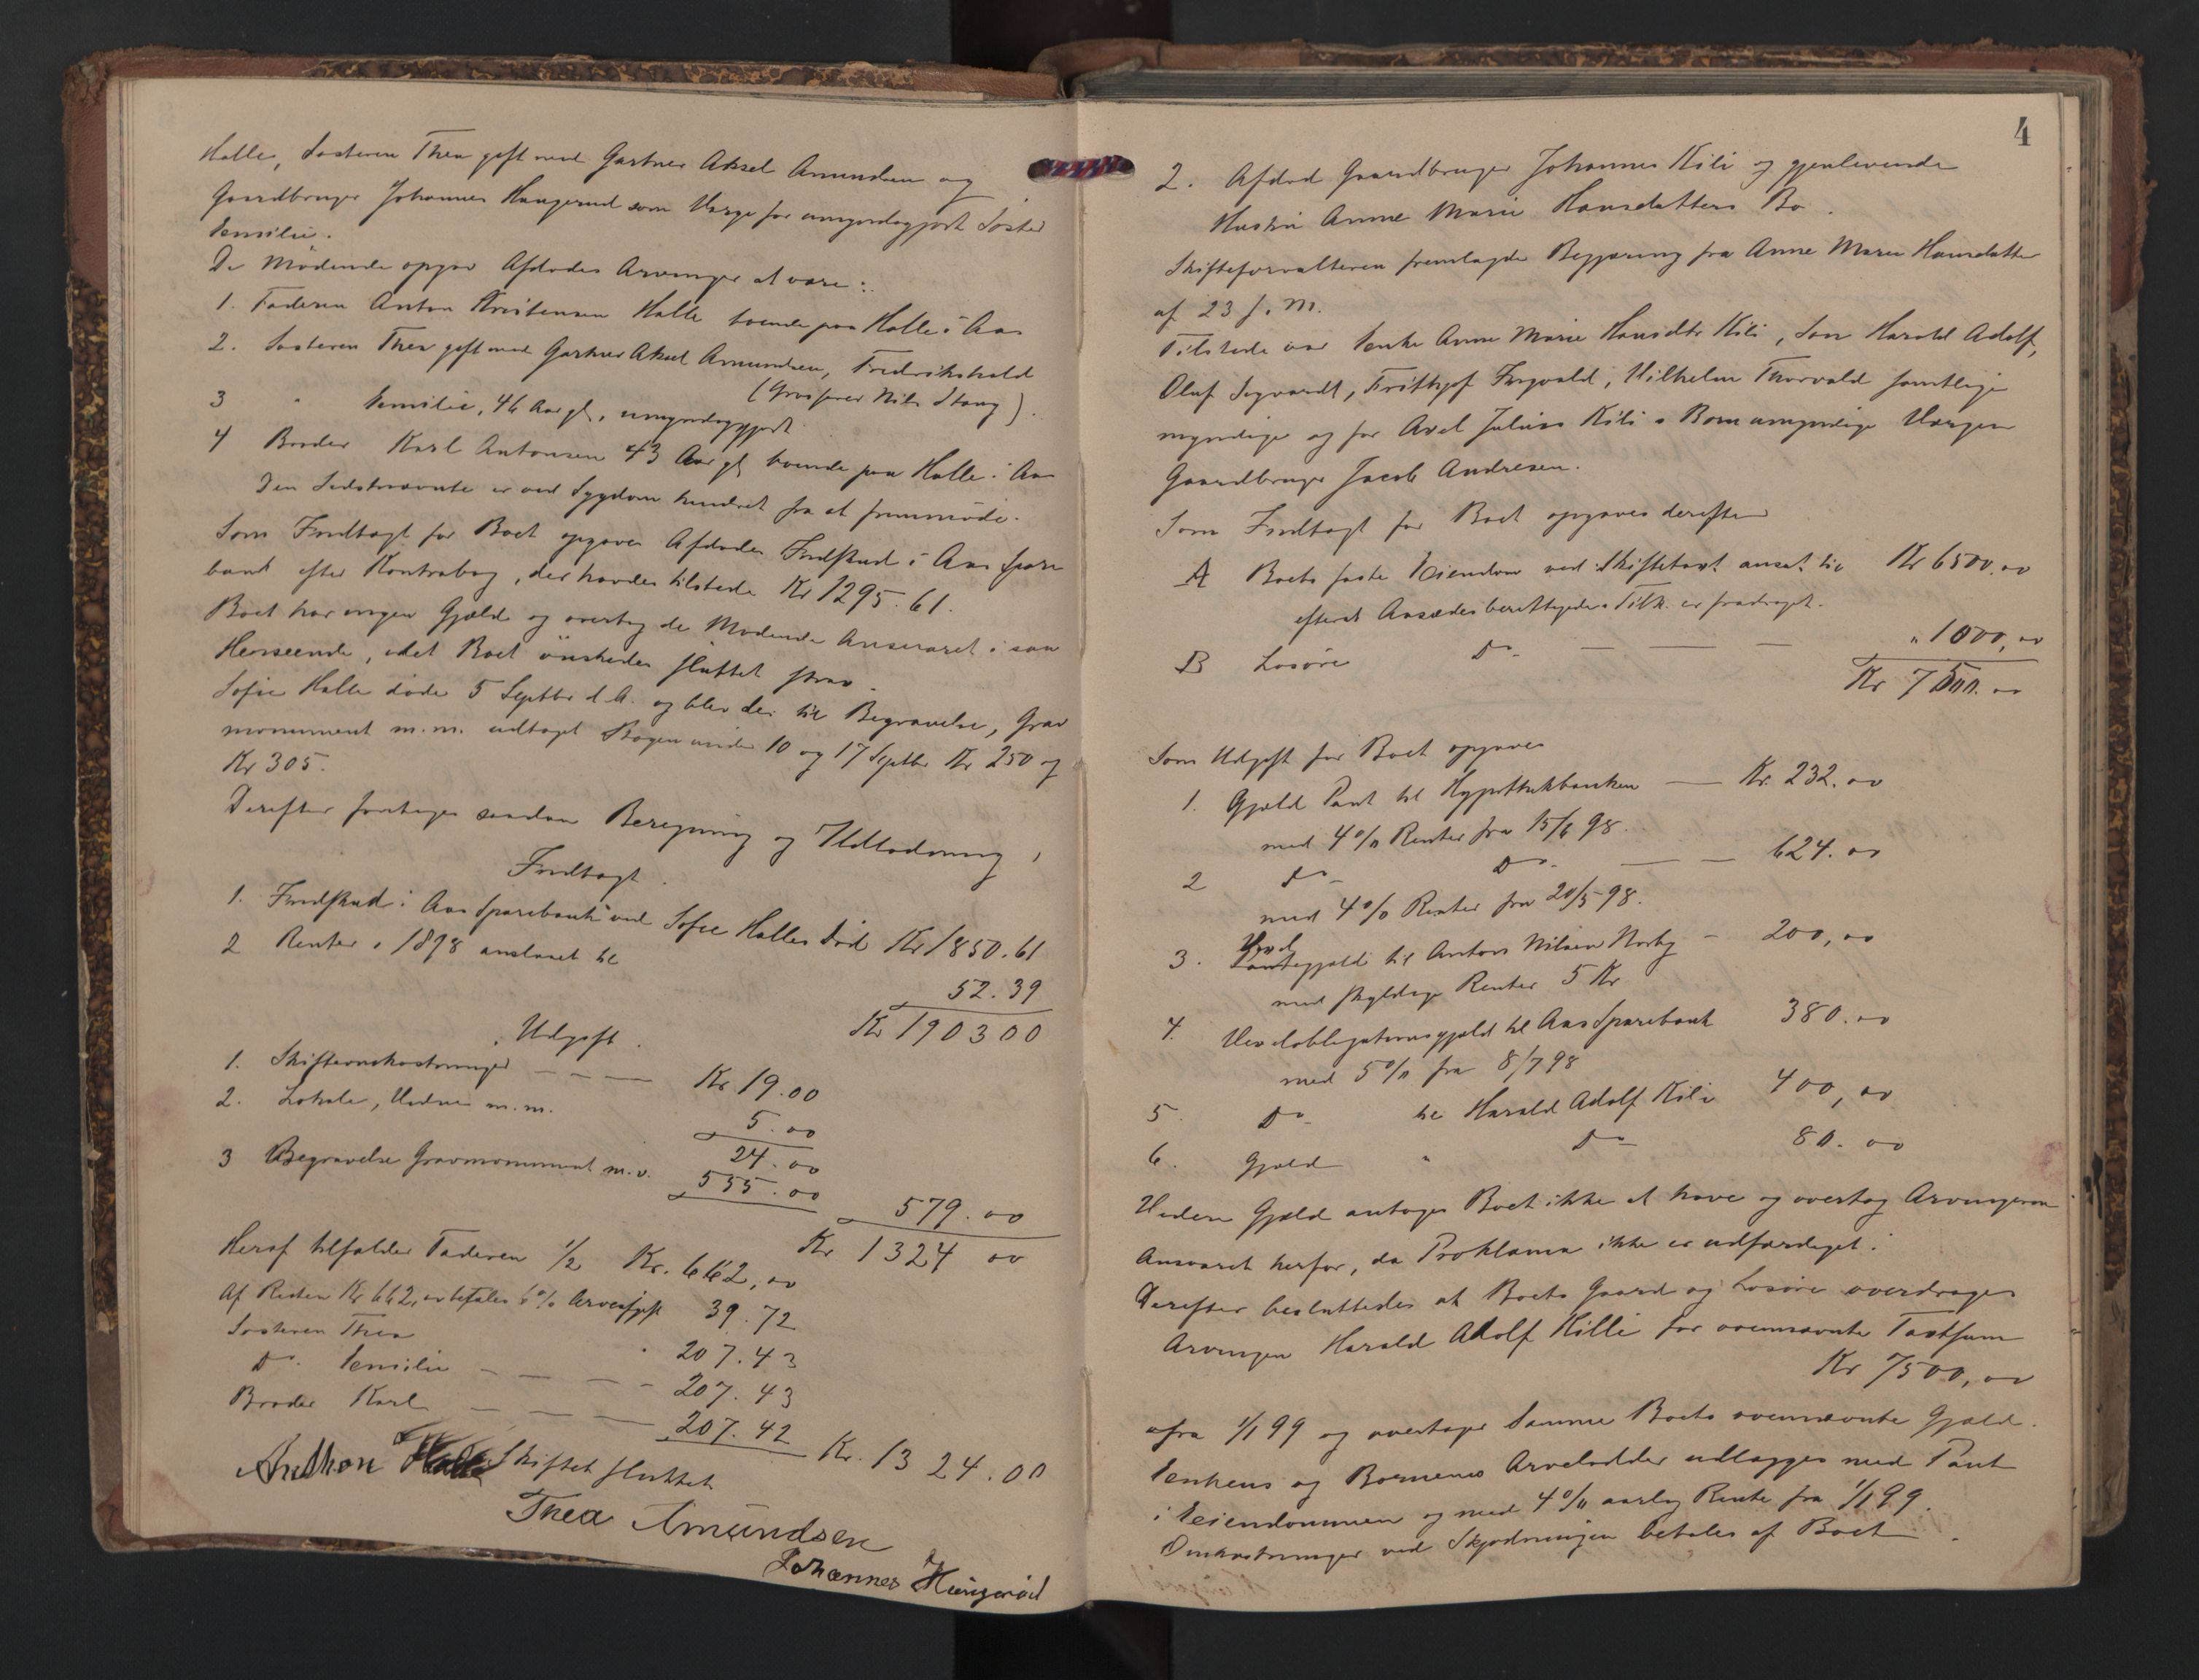 Halle, Søsteren Thea gift med Gartner Aksel Amundsen og
Gaardbruger Johannes Haugerud som Værge for umyndiggjort Søster
De Mødende opgav Afdødes Arvinger at være:
1. Faderen Anton Kristensen Halle boende paa Halle i Aas
2. Søsteren Thea gift med Gartner Aksel Amundsen, Fredrikshald
(Grosserer Nils Stang).
3 " 46 Aar gl, umyndiggjort.
4 Broder Karl Antonsen 43 Aar gl boende paa Halle i Aas
Den Sidstnævnte er ved Sygdom hindret fra at fremmøde.
Som Indtægt for Boet opgaves Afdødes Indskud i Aas Spare
bank efter Kontrabog, der havdes tilstede Kr 1295.61.
Boet har ingen Gjæld og overtog de Mødende Ansvaret i saa
Henseende, idet Boet ønskedes sluttet strax.
Sofie Halle døde 5 Septbr d.A. og blev der til Begravelse, Grav
monument m.m. udtaget Bogen under 10 og 17 Septbr Kr 250 og
Kr 305.
Derefter foretages saadan Beregning og Udlodning,
Indtægt.
1. Indskud i Aas Sparebank ved Sofie Halles Død Kr 1850.61
2 Renter i 1898 anslaaet til
52.39
Kr 190300
Udgift.
1. Skifteomkostninger — — — Kr 19.00
2. Lokale, Vidner m.m.
5.00
24.00
3 Begravelse Gravmonument m.v. 555.00
579.00
Kr 1324 00
Heraf tilfalder Faderen 1/2 Kr. 662,00
Af Resten Kr 662,00 betales 6% Arveafgift 39.72
Søsteren Thea " 207.43
Do. — — — — 207.43
Broder Karl — — — 207.42 Kr. 1324.00
Anthon Halle Skiftet sluttet
Thea Amundsen
Johannes Haugerød
4
2. Afdød Gaardbruger Johannes Kili og gjenlevende
Hustru Anne Marie Hansdatters Bo.
Skifteforvalteren fremlagde Begjæring fra Anne Marie Hansdatter
af 23 f.M.
Tilstede var Enke Anne Marie Hansdtr Kili, Søn Harald Adolf,
Oluf Sigvardt, Frithjof Ingvald, Vilhelm Thorvald samtlige
myndige og for Axel Julius Kilis Børn umyndige Værgen
Gaardbruger Jacob Andresen.
Som Indtægt for Boet opgaves derefter
A Boets faste Eiendom ved Skiftetaxt ansat til Kr 6500.00
efterat Aasædesberettigedes Tilk. er fradraget.
B Løsøre Do. — — — " 1000,00
Kr 7500.00
Som Udgift for Boet opgaves
1. Gjæld Pant til Hypothekbanken — Kr. 232.00
med 4% Renter fra 15/6 98.
2 Do Do. — — 624.00
med 4% Renter fra 20/5-98.
3. Vexelgjæld til Anton Nilsen Norby — 200,00
med skyldige Renter 5 Kr
4. Vexelobligationsgjæld til Aas Sparebank 380.00
med 5% fra 8/7 98
5. Do. til Harald Adolf Kili 400,00
6. Gjæld " Do — 80.00
Videre Gjæld antoges Boet ikke at have og overtog Arvingerne
Ansvaret herfor, da Proklama ikke er udfærdiget.
Derefter besluttedes at Boets Gaard og Løsøre overdrages
Arvingen Harald Adolf Killi for ovennævnte Taxtsum
Kr 7500,00
fra 1/1 99 og overtager Samme Boets ovennævnte Gjæld.
Enkens og Børnenes Arvelodder udlægges med Pant
i Eiendommen og med 4% aarlig Rente fra 1/1 99.
Omkostninger ved Skjødningen betales af Boet.